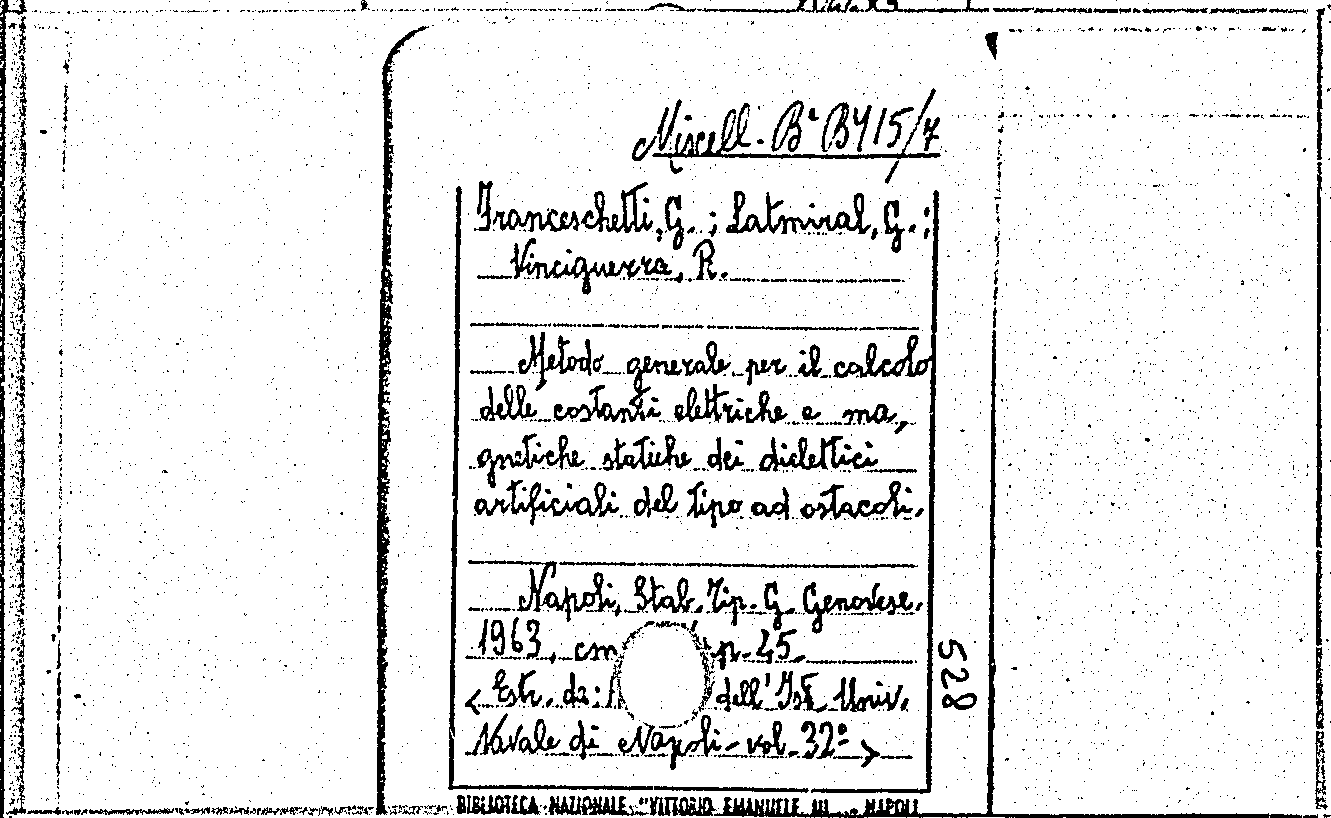 Miscell. Bª B415/7
Franceschetti, G. ; Latmiral, G. ;
Vinciguerra, R.
Metodo generale per il calcolo
delle costanti elettriche e ma,
gnetiche statiche dei dielettici
artificiali del tipo ad ostacoli.
Napoli, Stab. Tip. G. Genovese.
1963, cm p. 45.
< Estr. da: dell'Ist. Univ.
Navale di Napoli - vol. 32º >
528
BIBLIOTECA NAZIONALE "VITTORIO EMANUELE III - NAPOLI